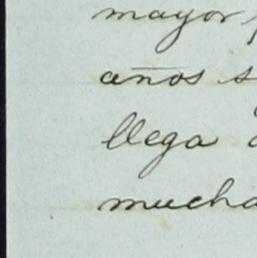 mayor
años
llega
mucha